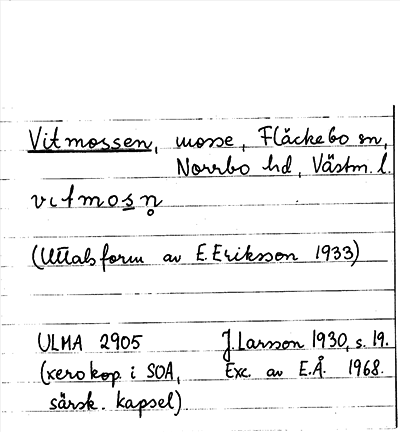 Vitmossen, mosse, Fläckebo sn,
Norrbo hd, Västm. l.
vitmosn̥
(Uttalsform av E. Eriksson 1933)
ULMA 2905 J. Larsson 1930, s. 19.
(xerokop. i SOA, Exc. av E.Å. 1968.
särsk. kapsel)